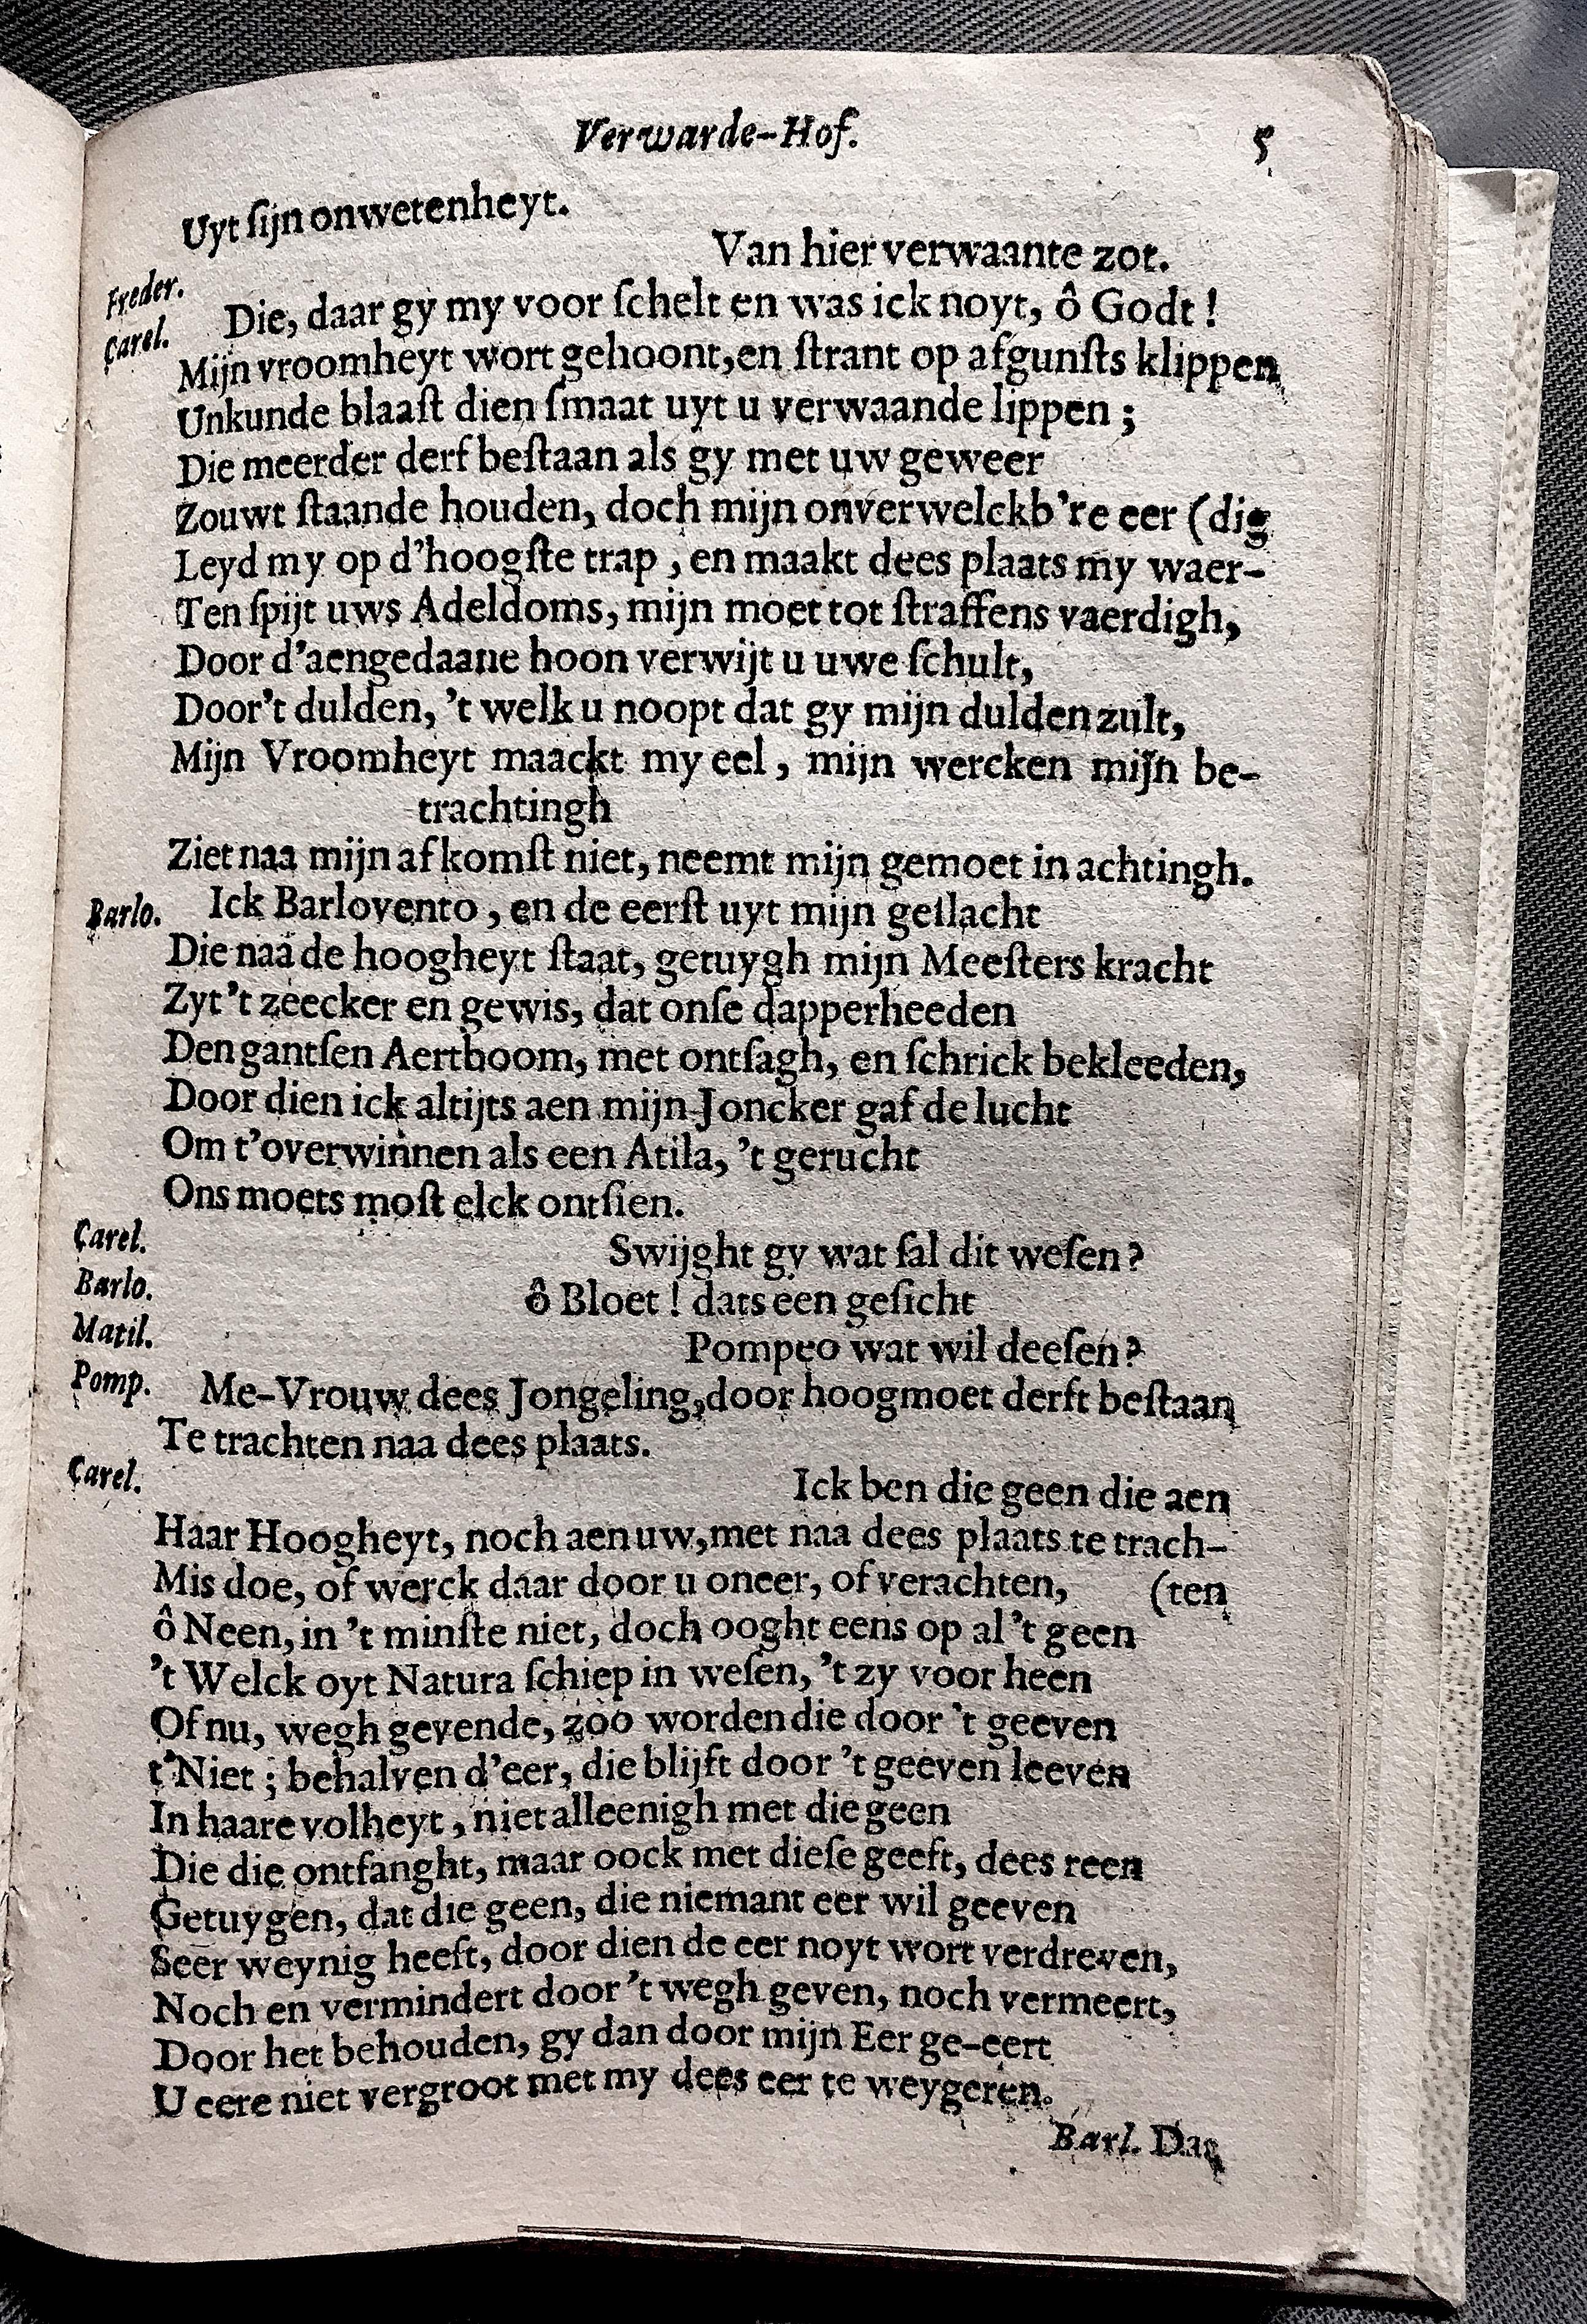 Verwarde-Hof. 5
Uyt ſijn onwetenheyt.
Freder. Van hier verwaante zot.
Carel. Die, daar gy my voor ſchelt en was ick noyt, ô Godt !
Mijn vroomheyt wort gehoont, en ſtrant op afgunſts klippen
Unkunde blaaſt dien ſmaat uyt u verwaande lippen ;
Die meerder derf beſtaan als gy met uw geweer
Zouwt ſtaande houden, doch mijn onverwelckb're eer (dig
Leyd my op d'hoogſte trap , en maakt dees plaats my waer-
Ten ſpijt uws Adeldoms, mijn moet tot ſtraffens vaerdigh,
Door d'aengedaane hoon verwijt u uwe ſchult,
Door't dulden, 't welk u noopt dat gy mijn dulden zult,
Mijn Vroomheyt maackt my eel , mijn wercken mijn be-
trachtingh
Ziet naa mijn afkomſt niet, neemt mijn gemoet in achtingh.
Barlo. Ick Barlovento , en de eerſt uyt mijn geſlacht
Die naa de hoogheyt ſtaat, getuygh mijn Meeſters kracht
Zyt 't zeecker en gewis, dat onſe dapperheeden
Den gantſen Aertboom, met ontſagh, en ſchrick bekleeden,
Door dien ick altijts aen mijn Joncker gaf de lucht
Om t'overwinnen als een Atila, 't gerucht
Ons moets moſt elck ontſien.
Carel. Swijght gy wat ſal dit weſen ?
Barlo. ô Bloet ! dats een geſicht
Matil. Pompeo wat wil deeſen ?
Pomp. Me-Vrouw dees Jongeling, door hoogmoet derft beſtaan
Te trachten naa dees plaats.
Carel. Ick ben die geen die aen
Haar Hoogheyt, noch aen uw, met naa dees plaats te trach-
Mis doe, of werck daar door u oneer, of verachten, (ten
ô Neen, in 't minſte niet, doch ooght eens op al 't geen
't Welck oyt Natura ſchiep in weſen, 't zy voor heen
Of nu, wegh gevende, zoo worden die door 't geeven
t'Niet ; behalven d'eer, die blijft door 't geeven leeven
In haare volheyt , niet alleenigh met die geen
Die die ontfanght, maar oock met dieſe geeft, dees reen
Getuygen, dat die geen, die niemant eer wil geeven
Seer weynig heeft, door dien de eer noyt wort verdreven,
Noch en vermindert door 't wegh geven, noch vermeert,
Door het behouden, gy dan door mijn Eer ge-eert
U eere niet vergroot met my dees eer te weygeren.
Barl. Dat